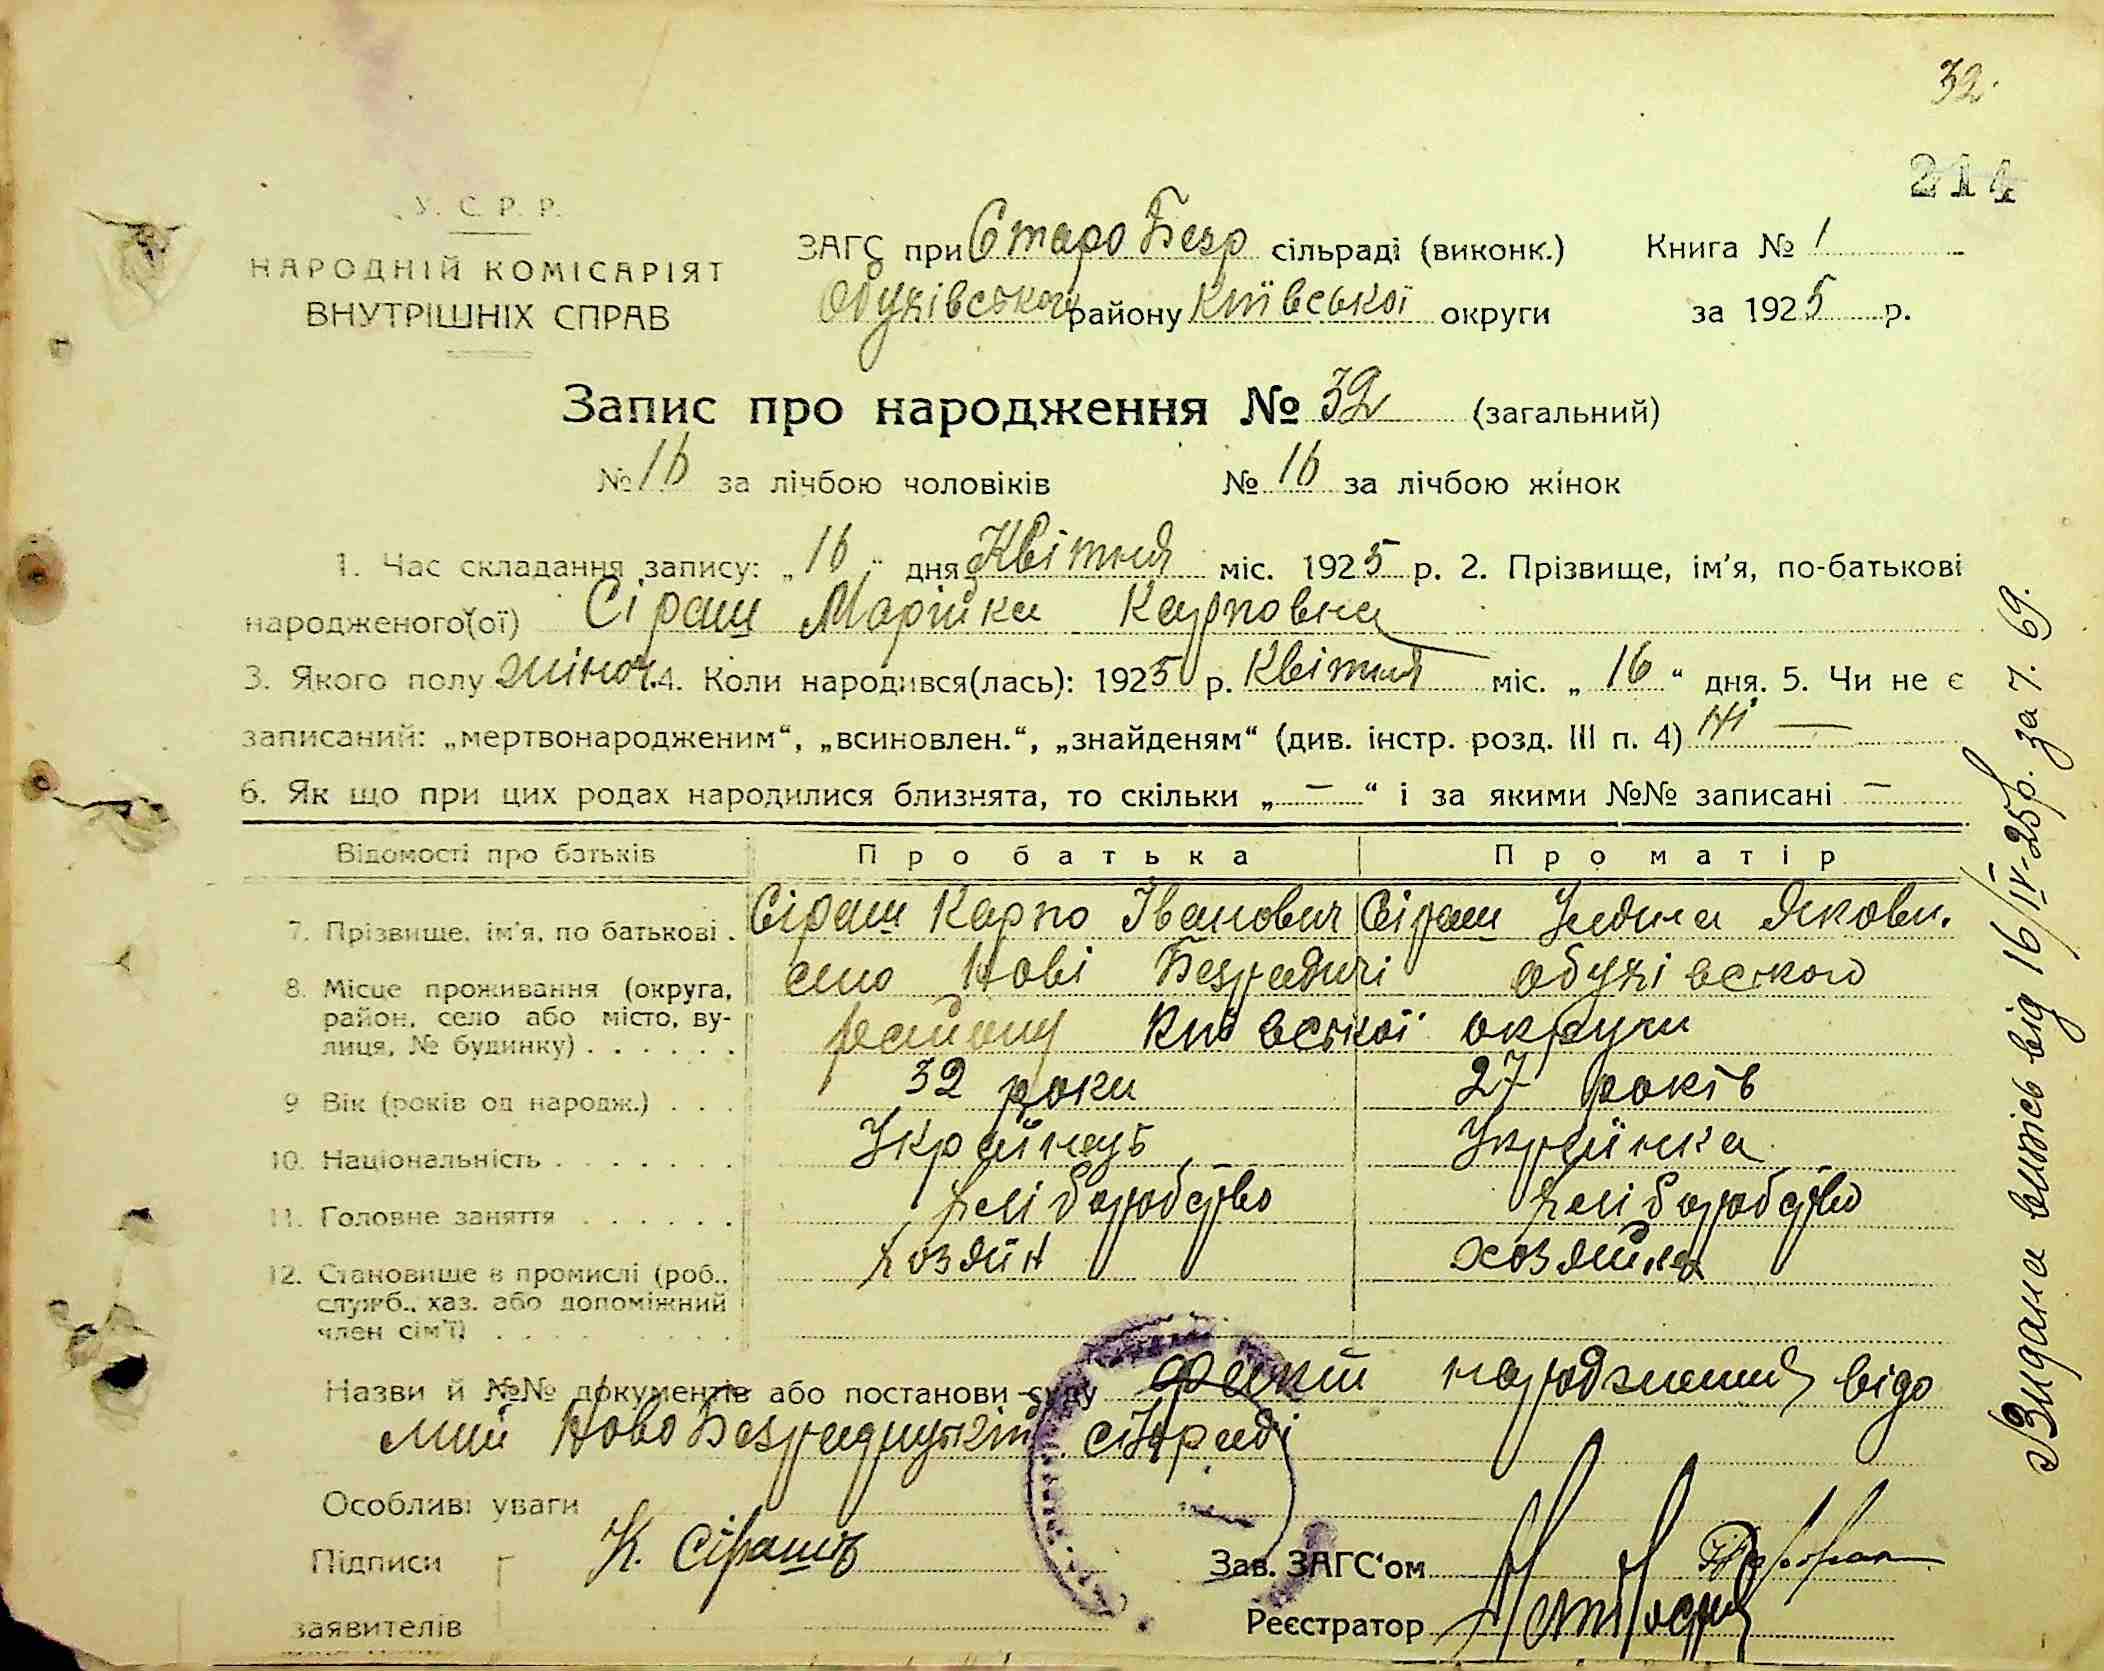 32.
214
У. С. Р. Р.
НАРОДНІЙ КОМІСАРІЯТ
ВНУТРІШНІХ СПРАВ
ЗАГС при Старо Безр сільраді (виконк.) Книга № 1
Обухівського району Київської округи за 1925 р.
Запис про народження № 32 (загальний)
№ 16 за лічбою чоловіків № 16 за лічбою жінок
1. Час складання запису: „16“ дня Квітня міс. 1925 р. 2. Прізвище, ім'я, по-батькові
народженого(ої) Сіраш Марійка Карповна
3. Якого полу жіноч. 4. Коли народився(лась): 1925 р. Квітня міс. „16“ дня. 5. Чи не є
записаний: „мертвонародженим“, „всиновлен.“, „знайденям“ (див. інстр. розд. III п. 4) ні —
6. Як що при цих родах народилися близнята, то скільки „ — “ і за якими №№ записані —
Відомості про батьків Про батька Про матір
7. Прізвище, ім'я, по батькові . Сіраш Карпо Іванович Сіраш Якови.
8. Місце проживання (округа, село Нові Безрадичі обухівського
район, село або місто, ву- району Київської округи
лиця, № будинку) . . . . . .
9 Вік (років од народж.) . . . 32 роки 27 років
10. Національність . . . . . . . Українець Українка
11. Головне заняття . . . . . . хліборобство хліборобство
12. Становище в промислі (роб., хозяйн хозяйка
служб., хаз. або допоміжний
член сім'ї) . . . . . . . . .
Назви й №№ документів або постанови суду факт народження відо
мий Ново Безрадицькій сільраді
Особливі уваги
Підписи К. Сірашъ Зав. ЗАГС'ом
заявителів Реєстратор
Видана витісь від 16/IV-25р. за ч. 69.